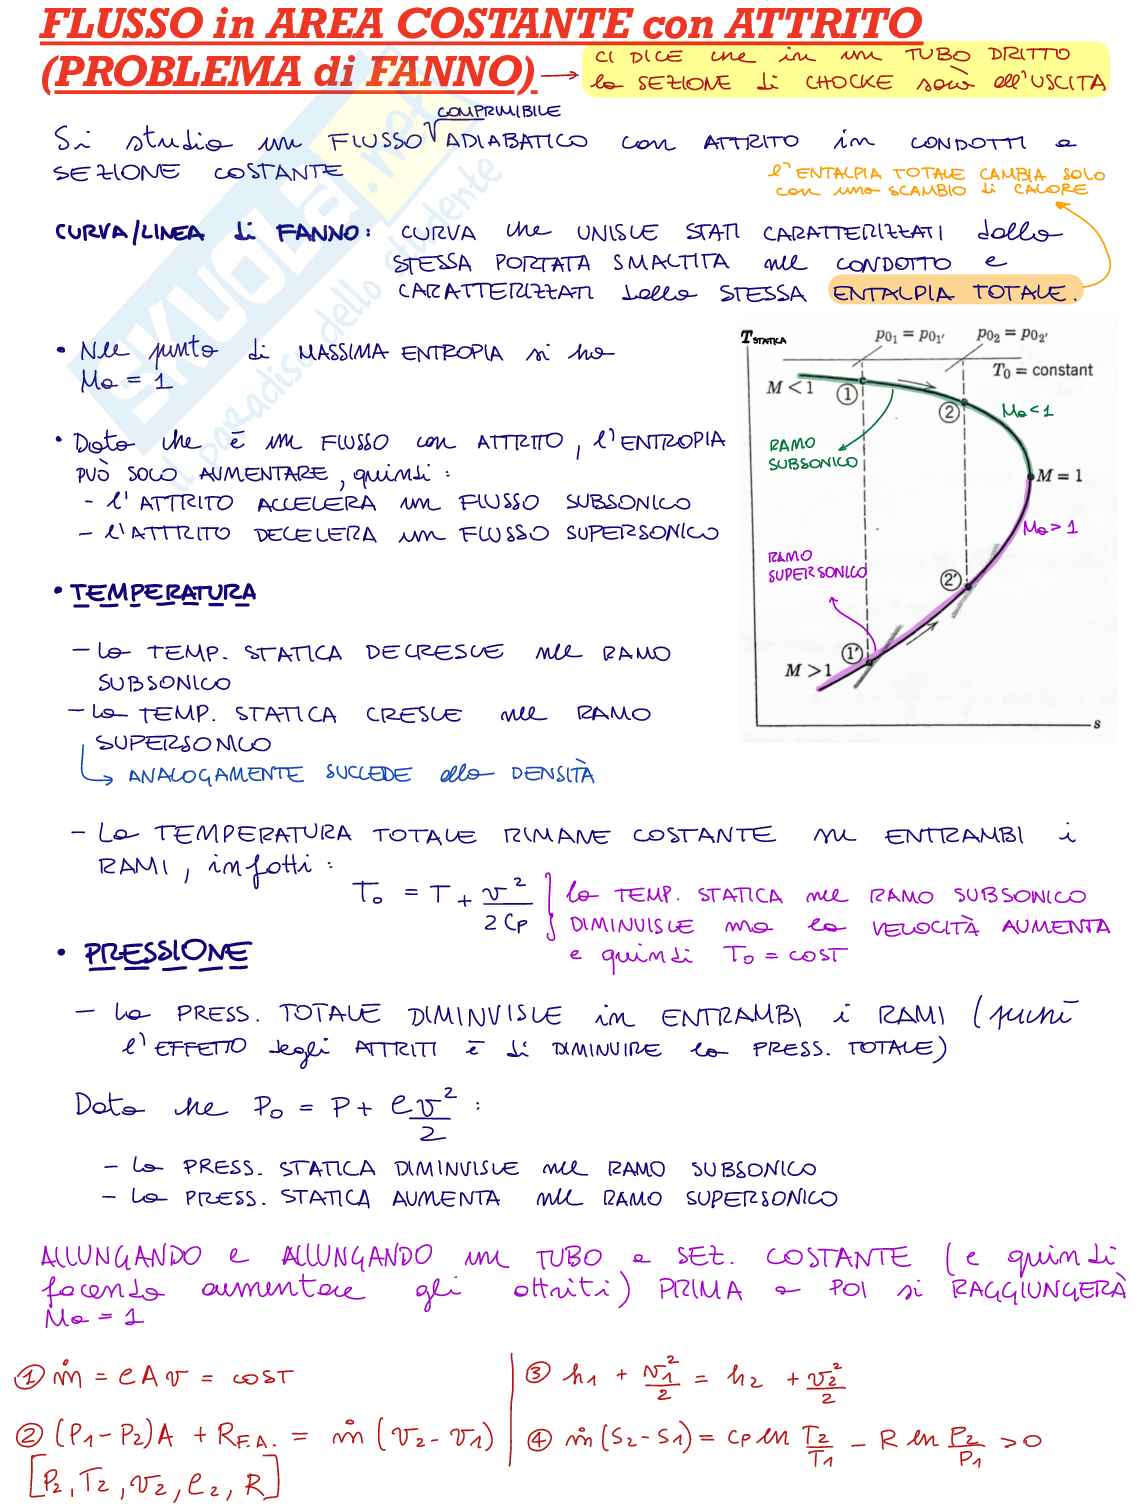 FLUSSO in AREA COSTANTE con ATTRITO
(PROBLEMA di FANNO) → CI DICE che in un TUBO DRITTO
la SEZIONE di CHOCKE sarà all'USCITA
Si studia un FLUSSO COMPRIMIBILE ADIABATICO con ATTRITO in CONDOTTI a
SEZIONE COSTANTE
l'ENTALPIA TOTALE CAMBIA SOLO
con uno SCAMBIO di CALORE
CURVA/LINEA di FANNO: CURVA che UNISCE STATI CARATTERIZZATI dalla
STESSA PORTATA SMALTITA nel CONDOTTO e
CARATTERIZZATI dalla STESSA ENTALPIA TOTALE.
• Nel punto di MASSIMA ENTROPIA si ha
Ma = 1
• Dato che è un FLUSSO con ATTRITO, l'ENTROPIA
PUÒ SOLO AUMENTARE, quindi:
- l'ATTRITO ACCELERA un FLUSSO SUBSONICO
- l'ATTRITO DECELERA un FLUSSO SUPERSONICO
T STATICA
p01 = p01' p02 = p02'
T0 = constant
M < 1
1
2
Ma < 1
RAMO
SUBSONICO
M = 1
Ma > 1
RAMO
SUPERSONICO
2'
1'
M > 1
s
• TEMPERATURA
- La TEMP. STATICA DECRESCE nel RAMO
SUBSONICO
- La TEMP. STATICA CRESCE nel RAMO
SUPERSONICO
↳ ANALOGAMENTE SUCCEDE alla DENSITÀ
- La TEMPERATURA TOTALE RIMANE COSTANTE su ENTRAMBI i
RAMI, infatti:
T₀ = T + v²/2Cp } la TEMP. STATICA nel RAMO SUBSONICO
DIMINUISCE ma la VELOCITÀ AUMENTA
e quindi T₀ = COST
• PRESSIONE
- La PRESS. TOTALE DIMINUISCE in ENTRAMBI i RAMI (perché
l'EFFETTO degli ATTRITI è di DIMINUIRE la PRESS. TOTALE)
Dato che P₀ = P + ρv²/2 :
- La PRESS. STATICA DIMINUISCE nel RAMO SUBSONICO
- La PRESS. STATICA AUMENTA nel RAMO SUPERSONICO
ALLUNGANDO e ALLUNGANDO un TUBO a SEZ. COSTANTE (e quindi
facendo aumentare gli attriti) PRIMA o POI si RAGGIUNGERÀ
Ma = 1
① ṁ = ρAv = COST
② (P₁-P₂)A + R_F.A. = ṁ(v₂-v₁)
[P₂, T₂, v₂, ρ₂, R]
③ h₁ + v₁²/2 = h₂ + v₂²/2
④ ṁ(S₂-S₁) = Cp ln T₂/T₁ - R ln P₂/P₁ > 0
SKUOLA.net
il paradiso dello studente